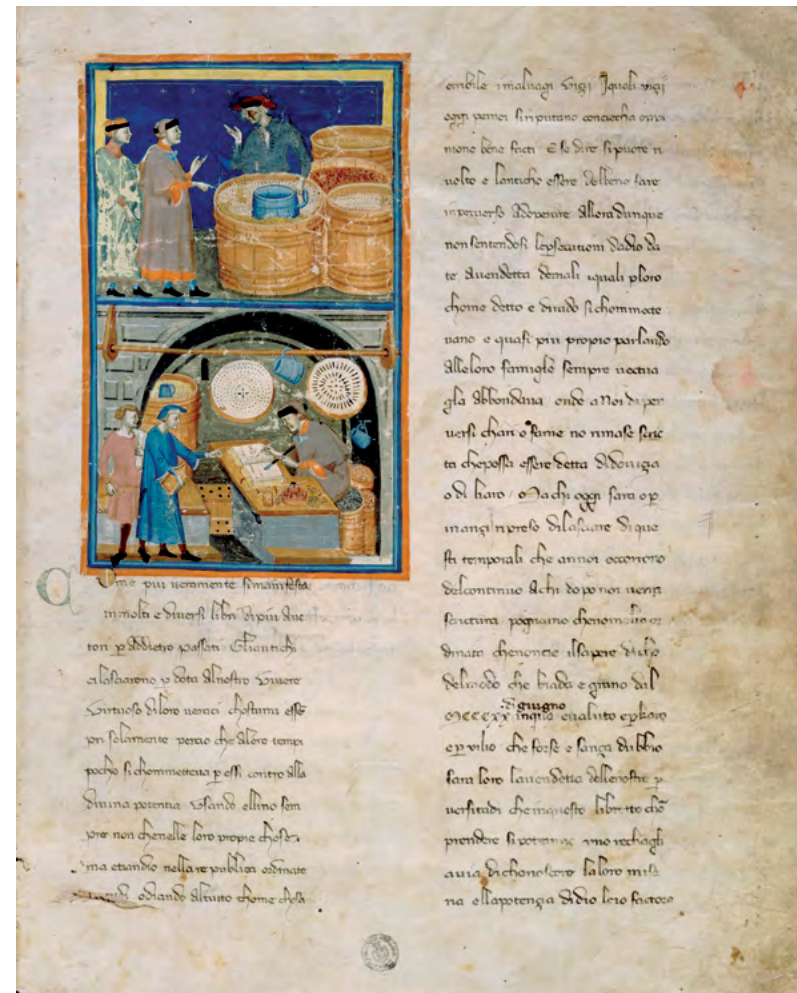 Come piu veramente si manifesta
in molti e diversi libri di piu auc
tori p addietro passati Gliantichi
cilasciarono p dota alnostro vivere
virtuoso diloro veraci chostumi esse
pri solamente percio che aloro tempi
pocho si chommetteva p essi contro alla
divina potentia Usando ellino sem
pre non chenelle loro proprie chose
ma etiandio nella re publica ordinate
odiando altutto chome chosa
orribile i malvagi vizi Iquali vizi
oggi per noi si riputano conciocha opra
mone bene facti E se dire si puote ri
volto e lanticho essere delbene fare
inperverso adoperare Allora dunque
non sentendosi lepsecutioni dadio da
te avendetta demali iquali ploro
chome detto e dirado si chommette
vano e quasi piu propio parlando
alleloro famiglie sempre vectua
glia abbondava onde a Noi di per
versi charo o fame no rimase scric
ta chepossa essere detta didovizia
o di charo Ma chi oggi sara o p
innanzi ripreso dilasciare di que
sti temporali che annoi occorrono
delcontinuo Achi dopo noi verra
scrictura pognamo chenome
dinato chenoncie ilsapere
delmodo che biada e grano dal
di giugno
MCCCXX inqua e valuto
e p vilio che forse e sanza dubbio
sara loro lavendetta dellenostre p
versitadi cheinquesto libretto chō
prendere si potranno
avia dichonoscere laloro mise
ria ellapotenzia didio loro factore